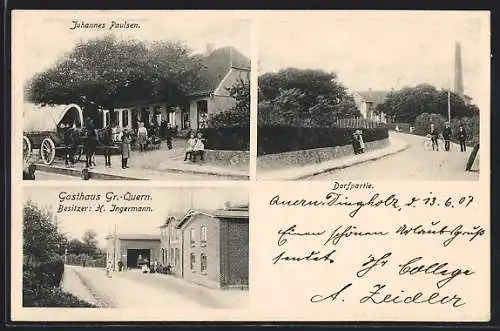 Johannes Paulsen.
Dorfpartie.
Gasthaus Gr.-Quern.
Besitzer: H. Ingermann.
d. 13. 6. 07
Einen schönen Urlaubsgruß
sendet Ihr College
A. Zeidler